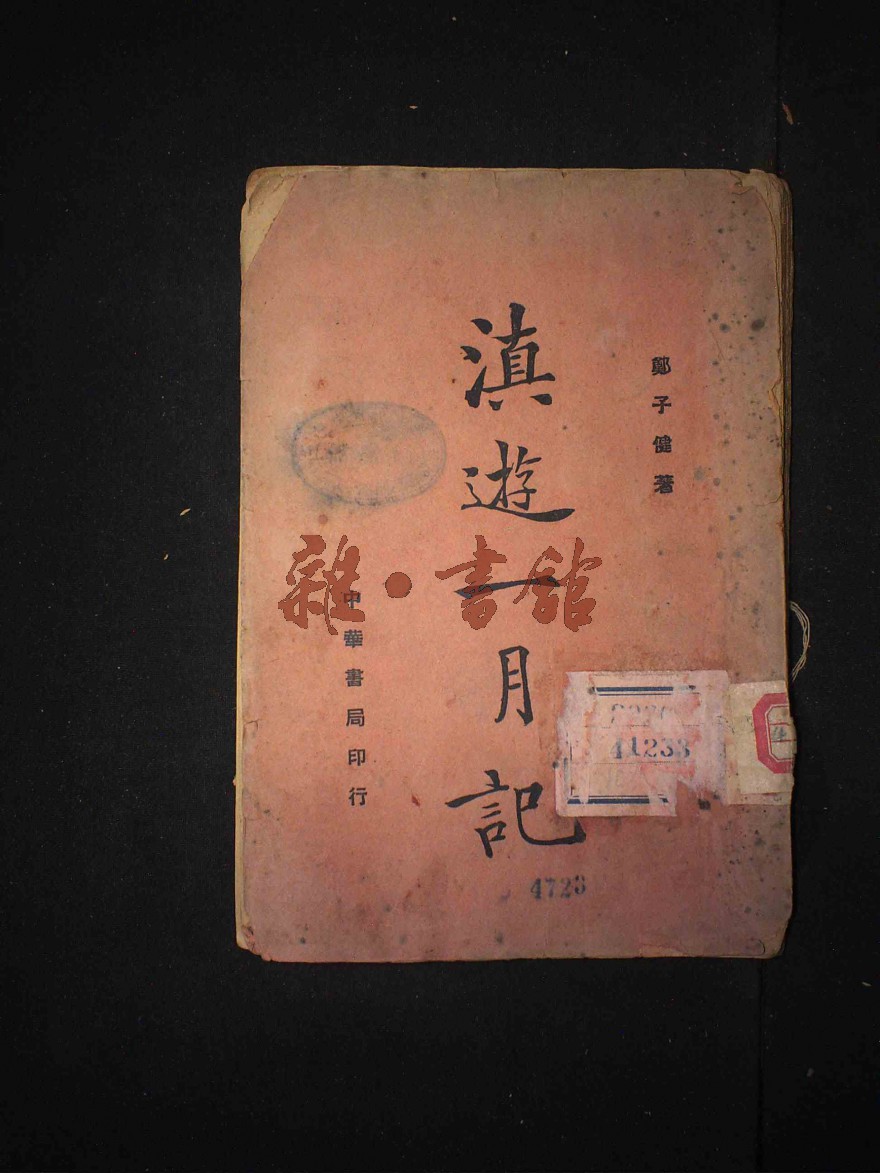 鄭子健著
滇遊一月記
中華書局印行
雜·書館
41233
4723